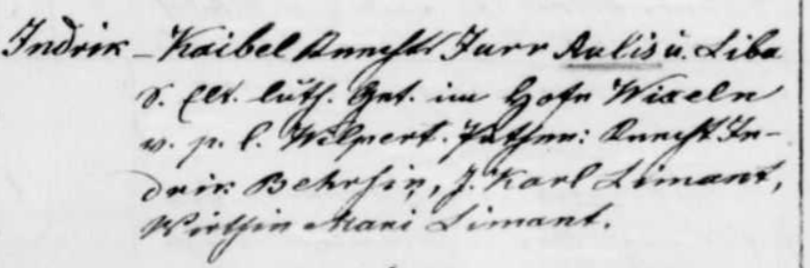 Indrik – Kaibel Knechts Jurr Aulis u. Liba
S. Elt. luth. Get. im Hofe Wixeln
v. p. l. Wilpert. Pathen: Knecht In-
drik Behrsiņ, J. Karl Limant,
Wirthin Mari Limant.